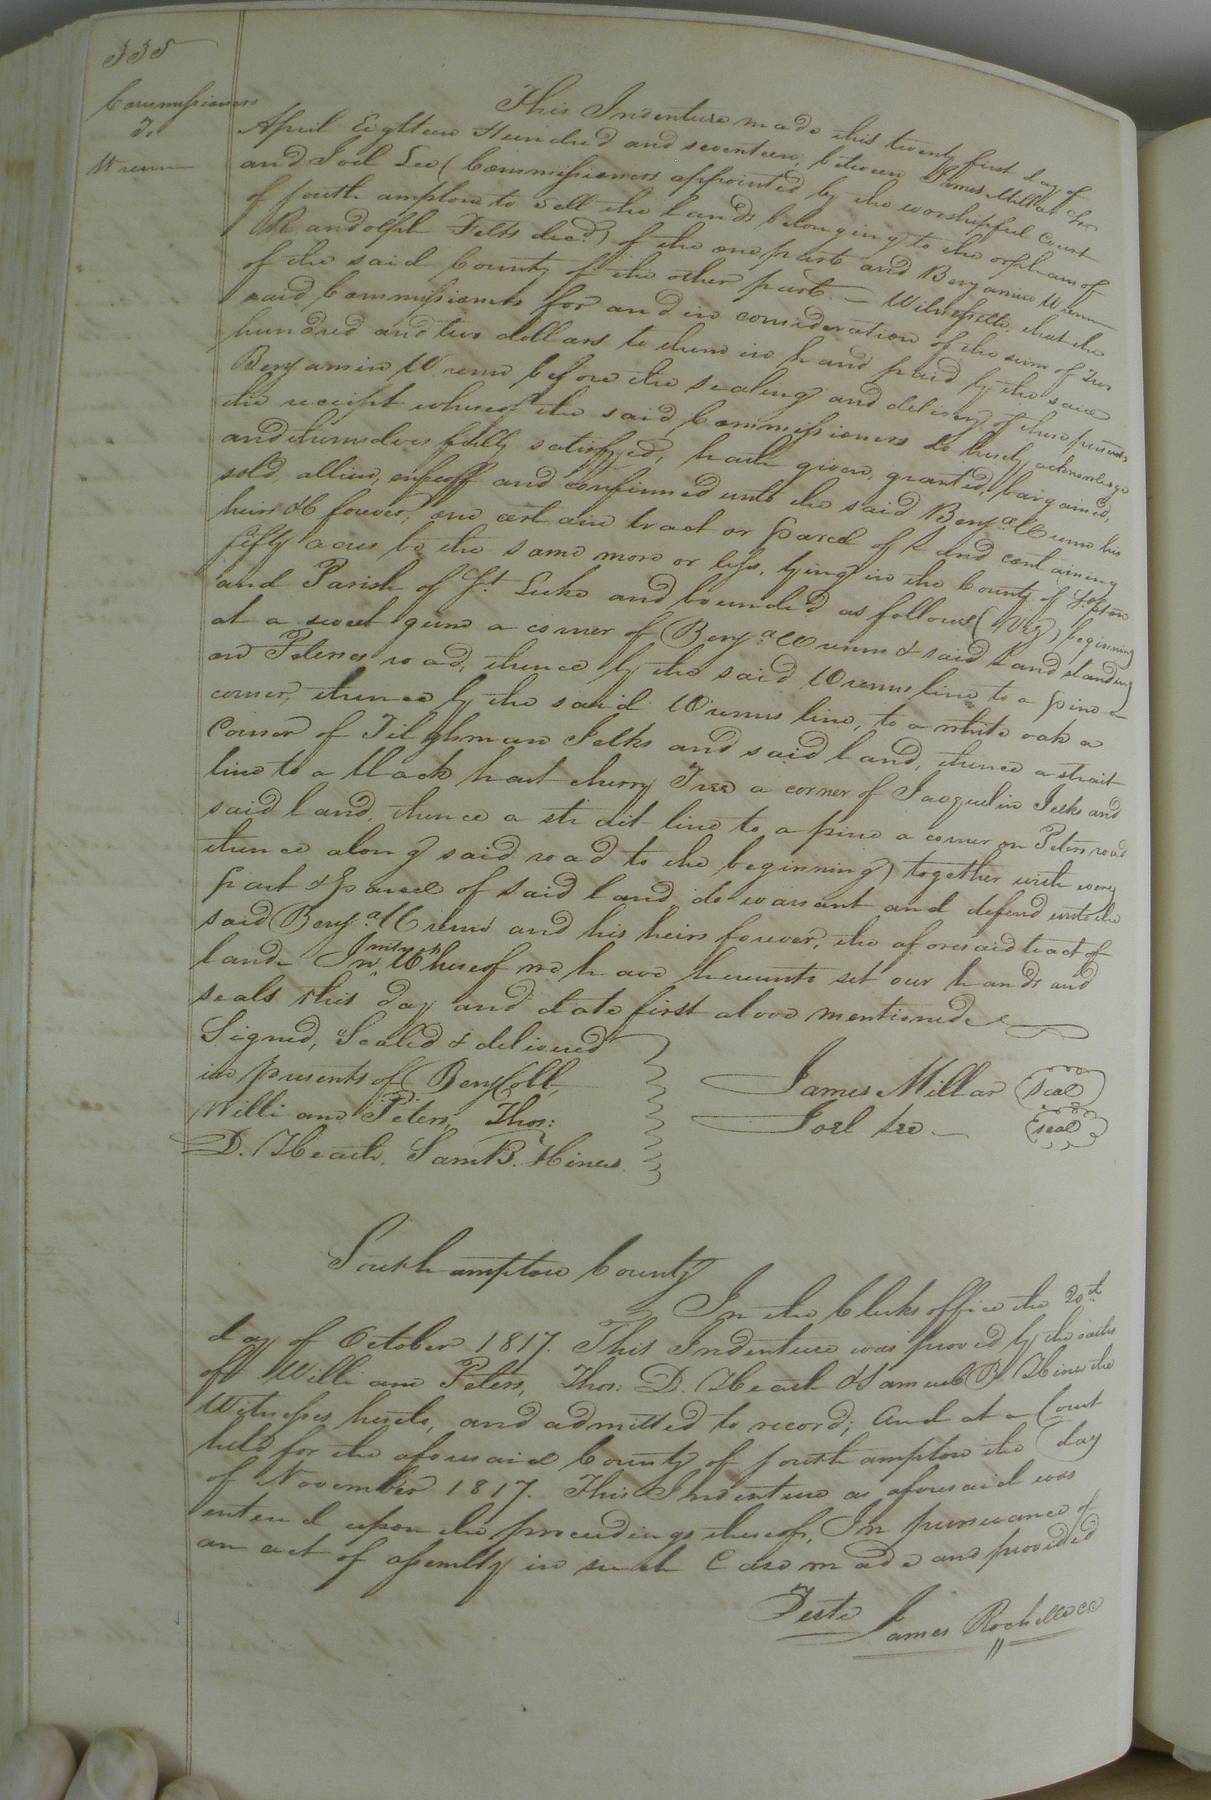 335
Commissioners
To
Wrenn
This Indenture made this twenty first day of
April Eighteen Hundred and seventeen, between James Millar
and Joel Lee (Commissioners appointed by the worshipful Court
of southampton to sell the lands belonging to the orphans of
Randolph Felts decd.) of the one part and Benjamin Wrenn
of the said County of the other part. — Witnesseth, that the
said Commissioners for and in consideration of the sum of Two
hundred and two dollars to them in hand paid by the said
Benjamin Wrenn before the sealing and delivery of these presents
the receipt whereof the said Commissioners do hereby acknowledge
and themselves fully satisfyed, hath given, granted, bargained,
sold, allien, enfeoff and confirmed unto the said Benja. Wrenn his
heirs &C forever, one certain tract or parcel of land containing
fifty acres be the same more or less, lying in the County of
and Parish of St. Luke and bounded as follows (Viz) beginning
at a sweet gum a corner of Benja. Wrenns & said land standing
on Peters road, thence by the said Wrenns line to a pine a
corner, thence by the said Wrenns line, to a white oak a
Corner of Tilghman Jelks and said land, thence a strait
line to a black hart cherry Tree a corner of Jacquelin Jelks and
said land, thence a strait line to a pine a corner on Peters road
thence along said road to the beginning) together with every
part & parcel of said land, do warrant and defend unto the
said Benja. Wrenn and his heirs forever, the aforesaid tract of
land. In Witness Whereof we have hereunto set our hands and
seals this day and date first above mentioned
Signed, Sealed & delivered
in presents of Benj Cobb,
William Peters, Thos:
D. Heath, Sam B. Hines
James Millar (seal)
Joel Lee (seal)
Southampton County
In the Clerks office the 20th
day of October 1817. This Indenture was proved by the oaths
of William Peters, Thos: D. Heath & Samuel B. Hines the
Witnesses hereto, and admitted to record; And at a Court
held for the aforesaid County of southampton the day
of November 1817. This Indenture as aforesaid was
entered upon the proceedings thereof, In pursuance of
an act of assembly in such Case made and provided
Teste
James Rochelle CC